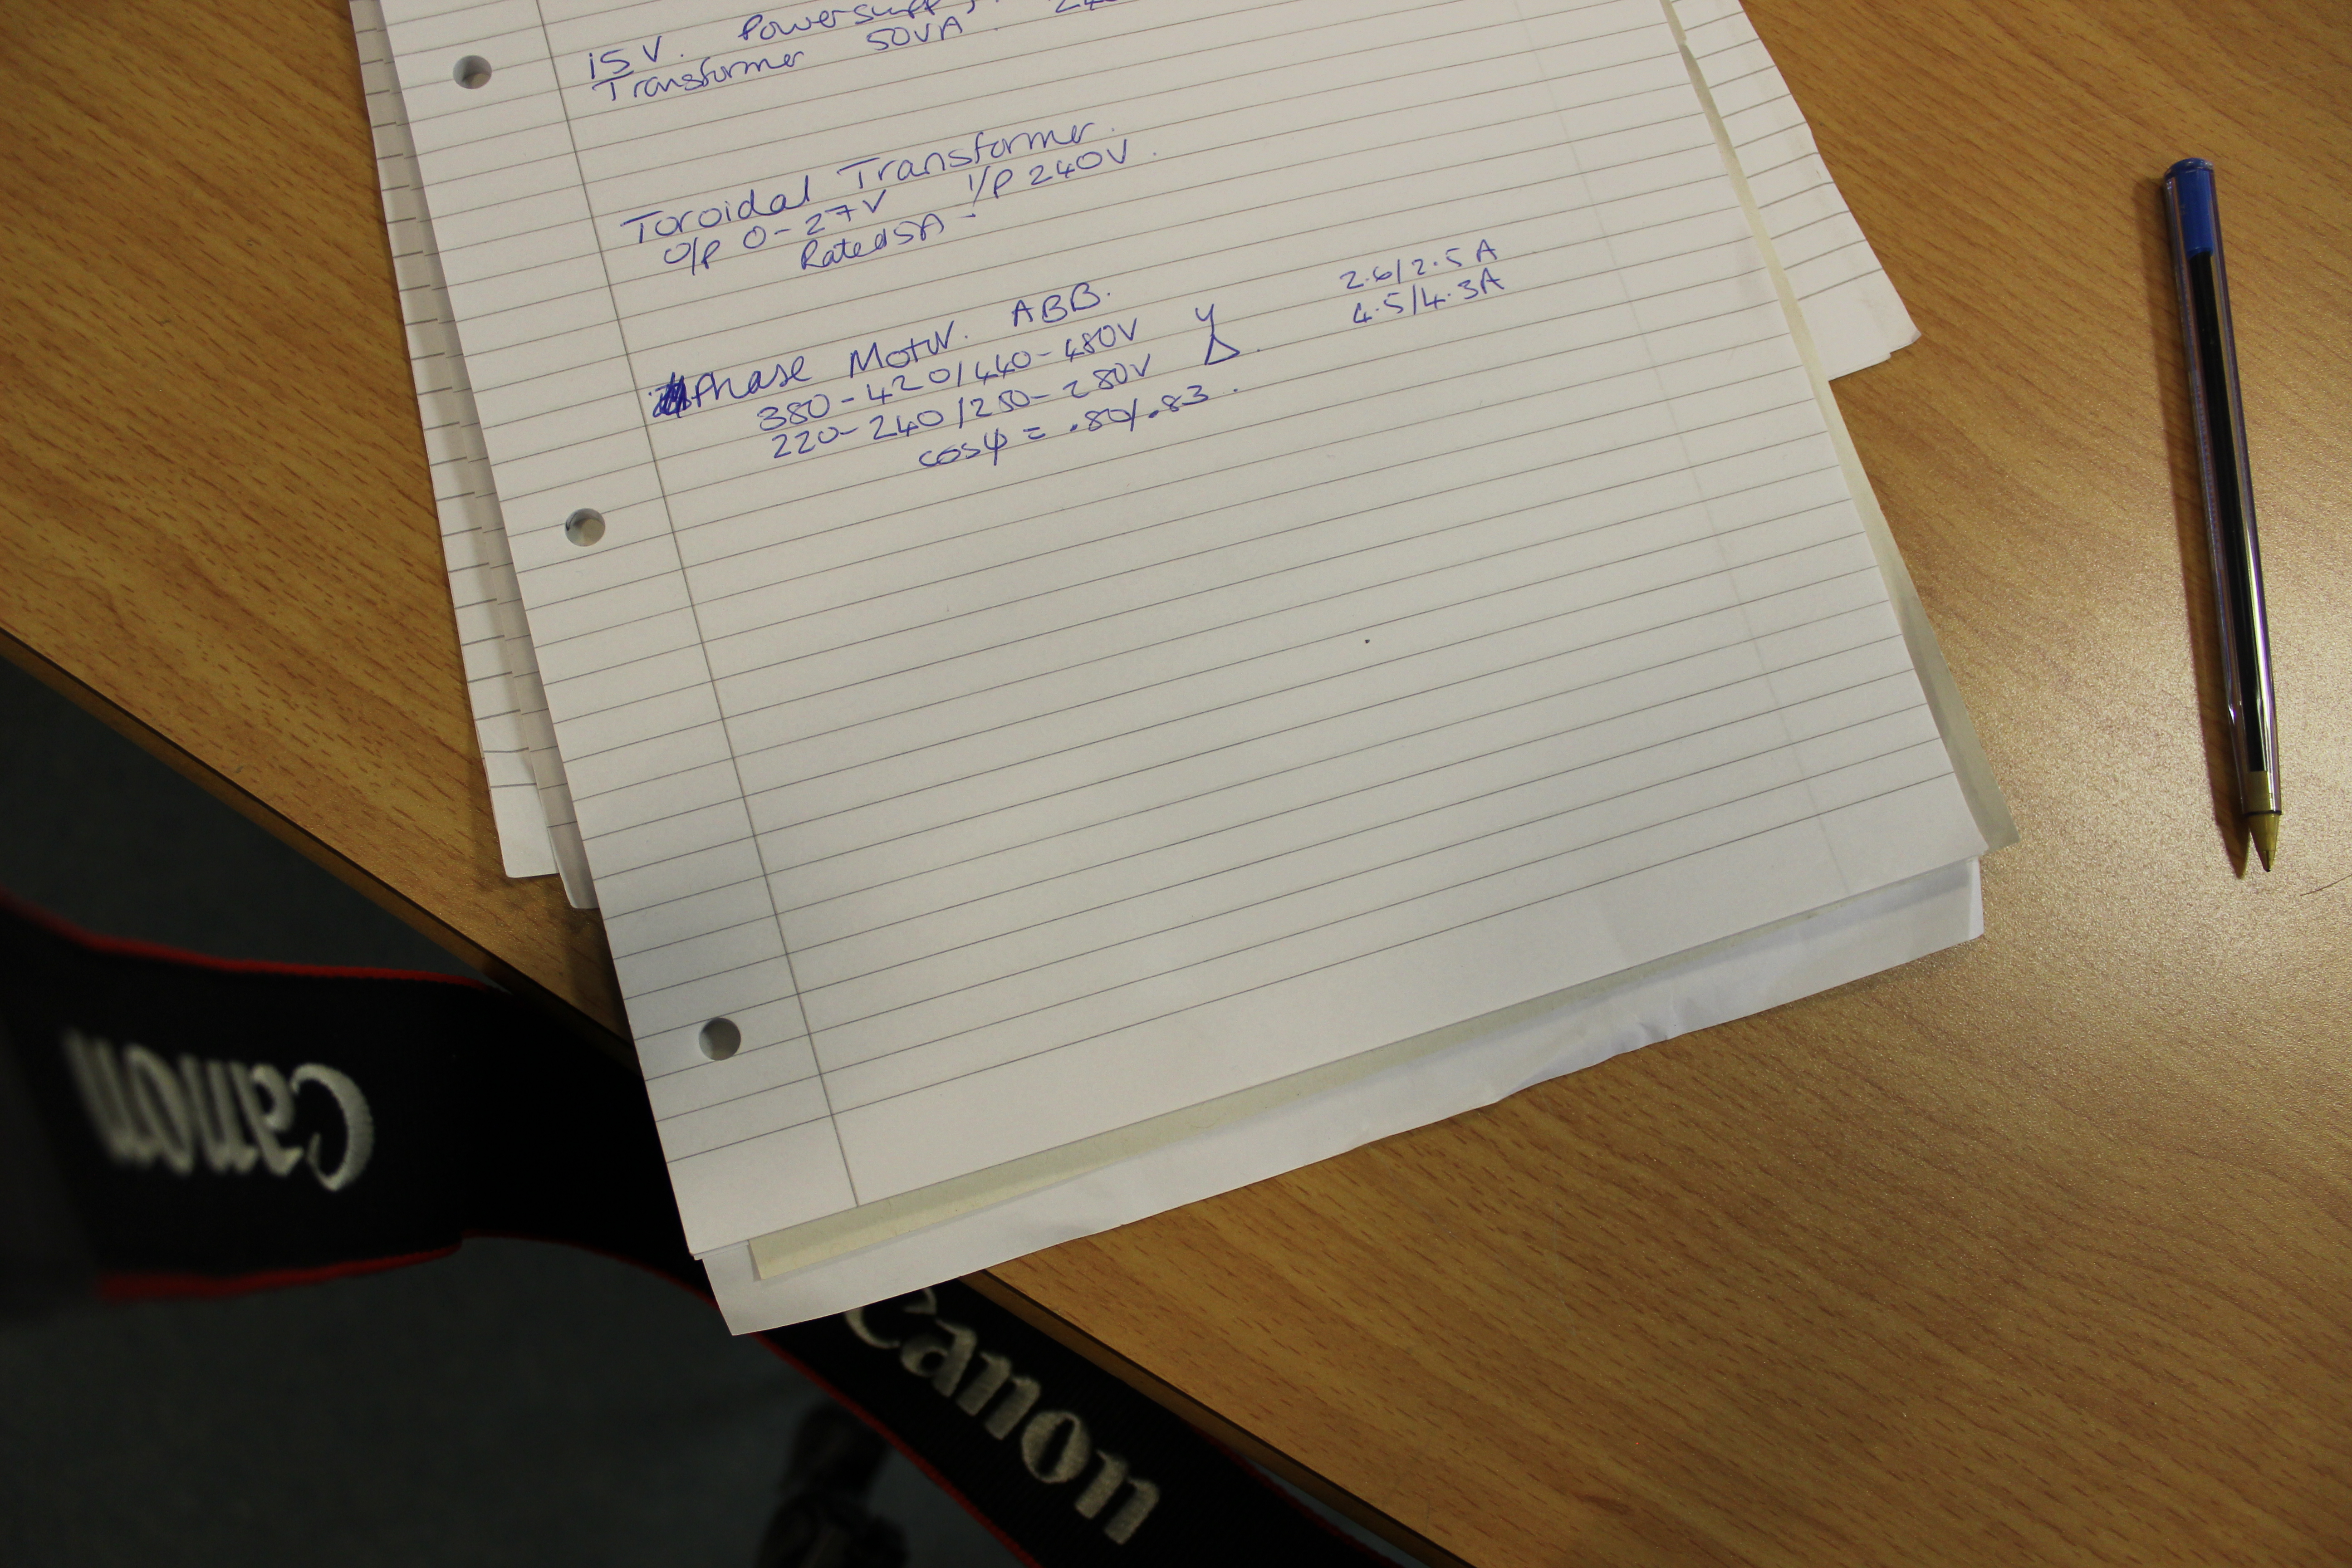 15V. Power
Transformer 50VA.
Toroidal Transformer.
O/P 0-27V I/P 240V.
Rated 5A -
Phase Motor. ABB.
380-420/440-480V Y 2.6/2.5A
220-240/250-280V Δ. 4.5/4.3A
cosψ = .80/.83.
Canon
Canon